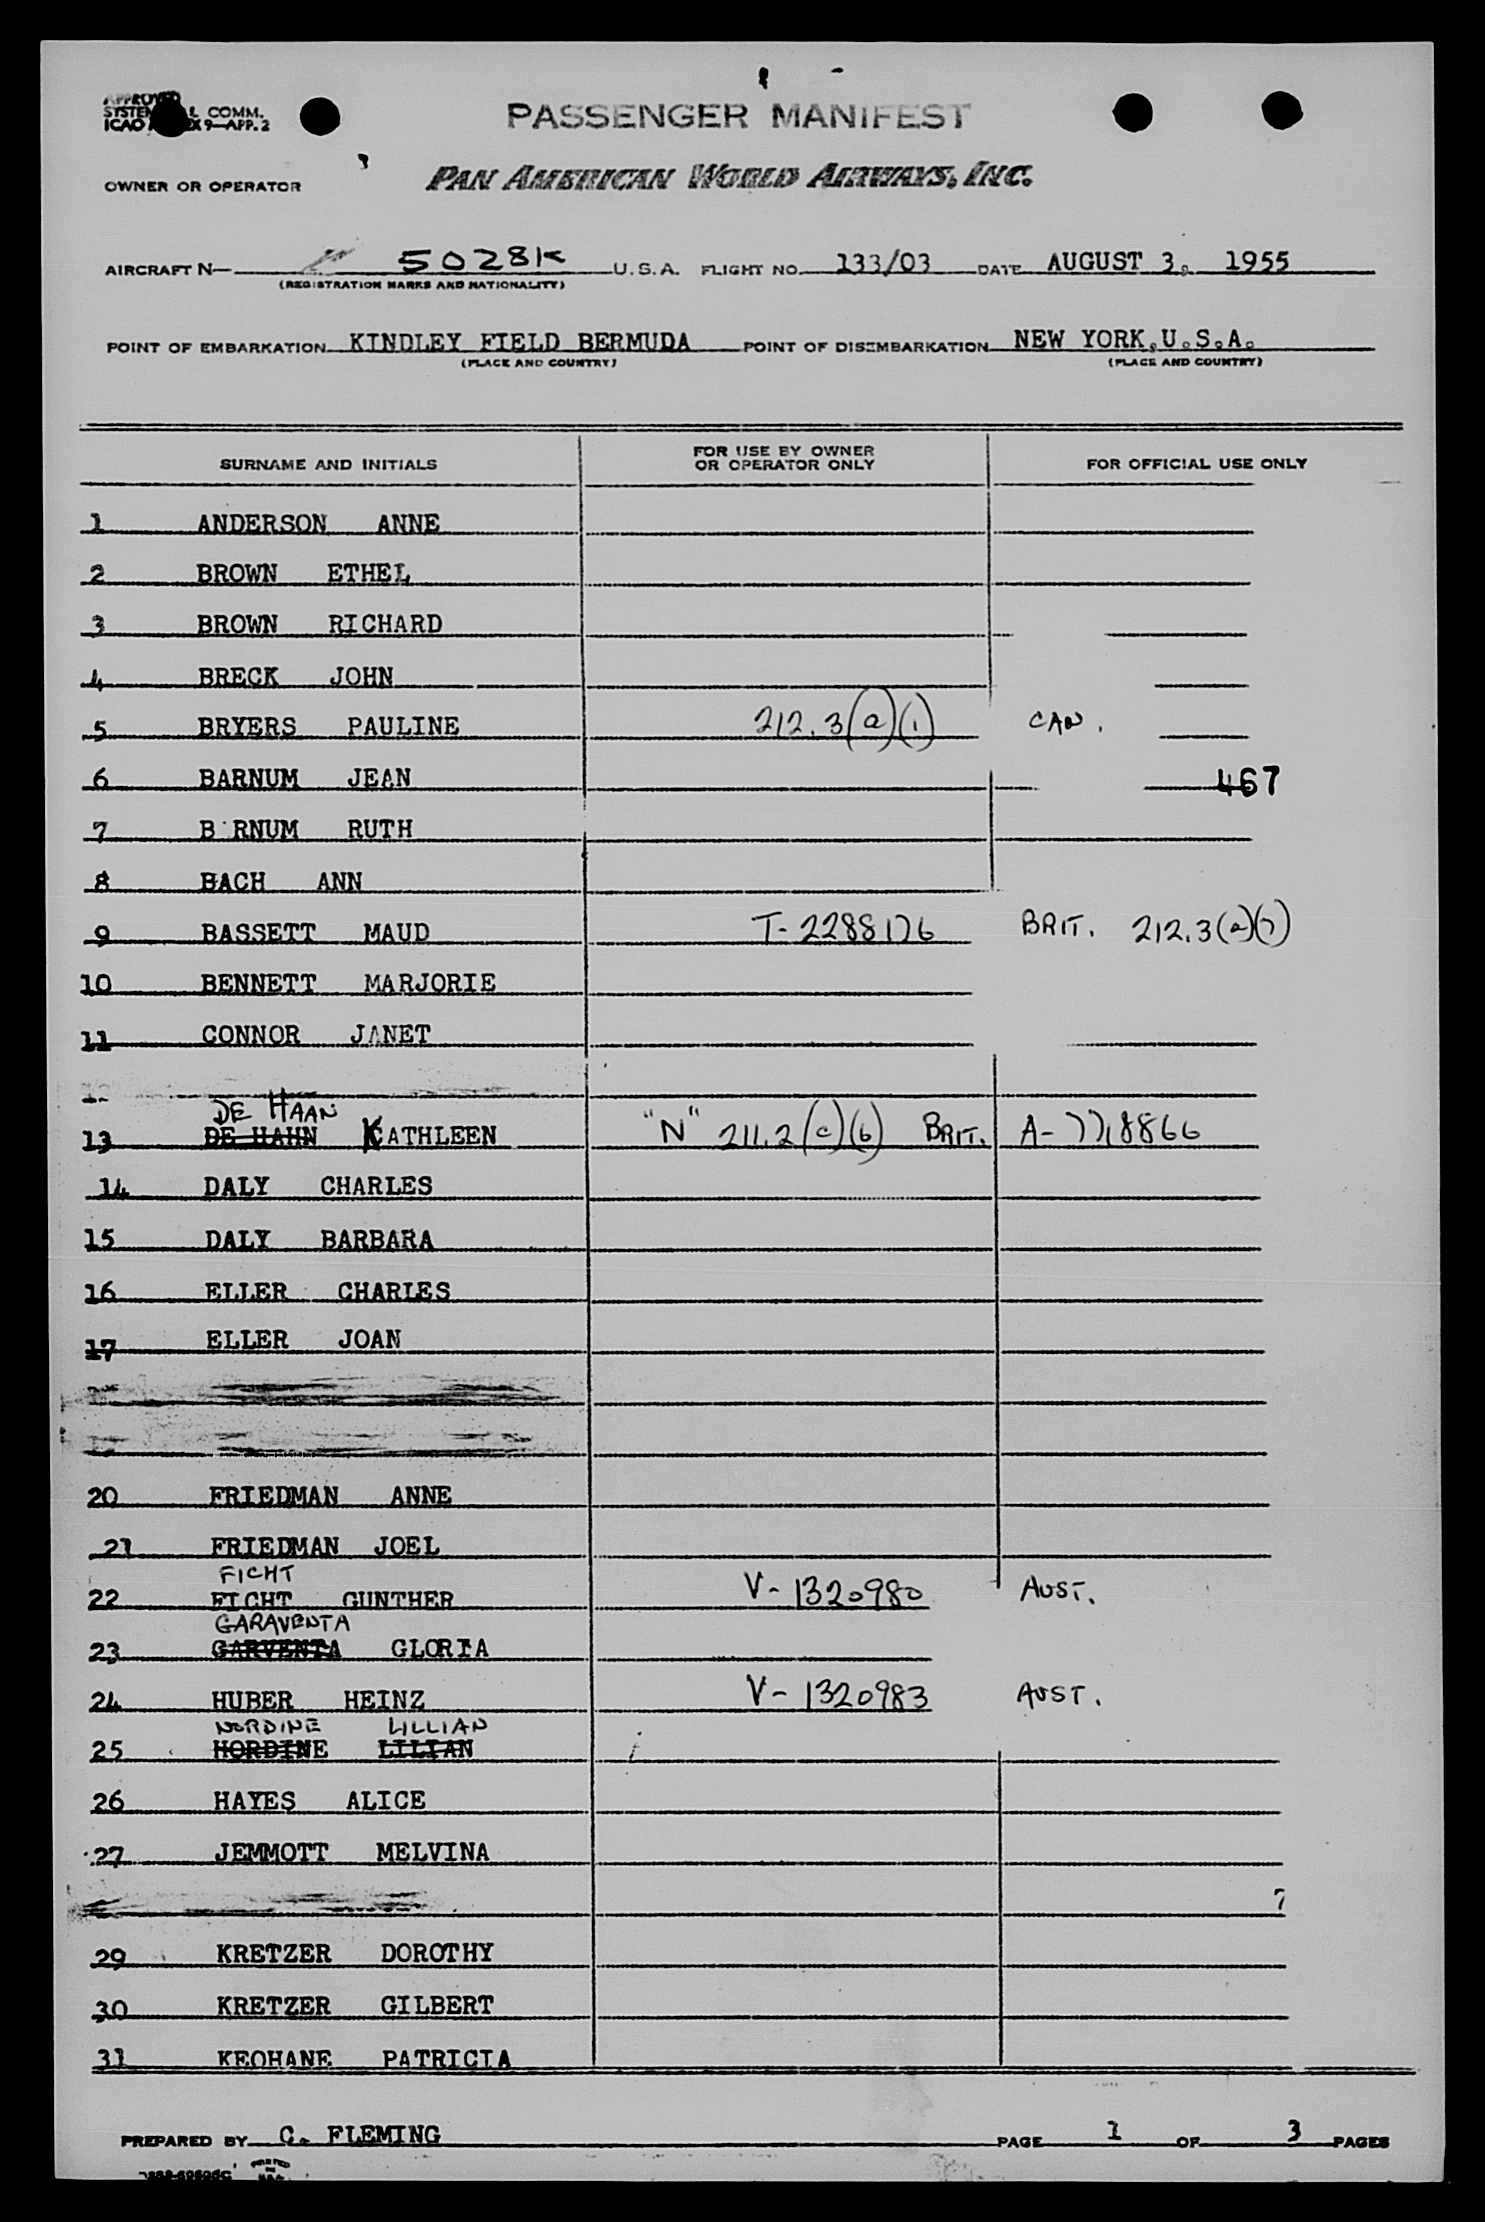 APPROVED
SYSTEM & COMM.
ICAO 9—APP. 2
PASSENGER MANIFEST
OWNER OR OPERATOR PAN AMERICAN WORLD AIRWAYS, INC.
AIRCRAFT N— 5028K U.S.A. FLIGHT NO. 133/03 DATE AUGUST 3. 1955
(REGISTRATION MARKS AND NATIONALITY)
POINT OF EMBARKATION KINDLEY FIELD BERMUDA POINT OF DISEMBARKATION NEW YORK,U.S.A.
(PLACE AND COUNTRY) (PLACE AND COUNTRY)
SURNAME AND INITIALS FOR USE BY OWNER OR OPERATOR ONLY FOR OFFICIAL USE ONLY
1 ANDERSON ANNE
2 BROWN ETHEL
3 BROWN RICHARD
4 BRECK JOHN
5 BRYERS PAULINE 212.3(a)(1) CAN.
6 BARNUM JEAN 467
7 B RNUM RUTH
8 BACH ANN
9 BASSETT MAUD T-2288176 BRIT. 212.3(a)(7)
10 BENNETT MARJORIE
11 CONNOR JANET
DE HAAN
13 DE HAHN KATHLEEN "N" 211.2(c)(6) BRIT. A-7718866
14 DALY CHARLES
15 DALY BARBARA
16 ELLER CHARLES
17 ELLER JOAN
20 FRIEDMAN ANNE
21 FRIEDMAN JOEL
FICHT
22 FICHT GUNTHER V-1320980 AUST.
GARAVENTA
23 GARVENTA GLORIA
24 HUBER HEINZ V-1320983 AUST.
NORDINE LILLIAN
25 HORDINE LILIAN
26 HAYES ALICE
27 JEMMOTT MELVINA
7
29 KRETZER DOROTHY
30 KRETZER GILBERT
31 KEOHANE PATRICIA
PREPARED BY C. FLEMING PAGE 1 OF 3 PAGES